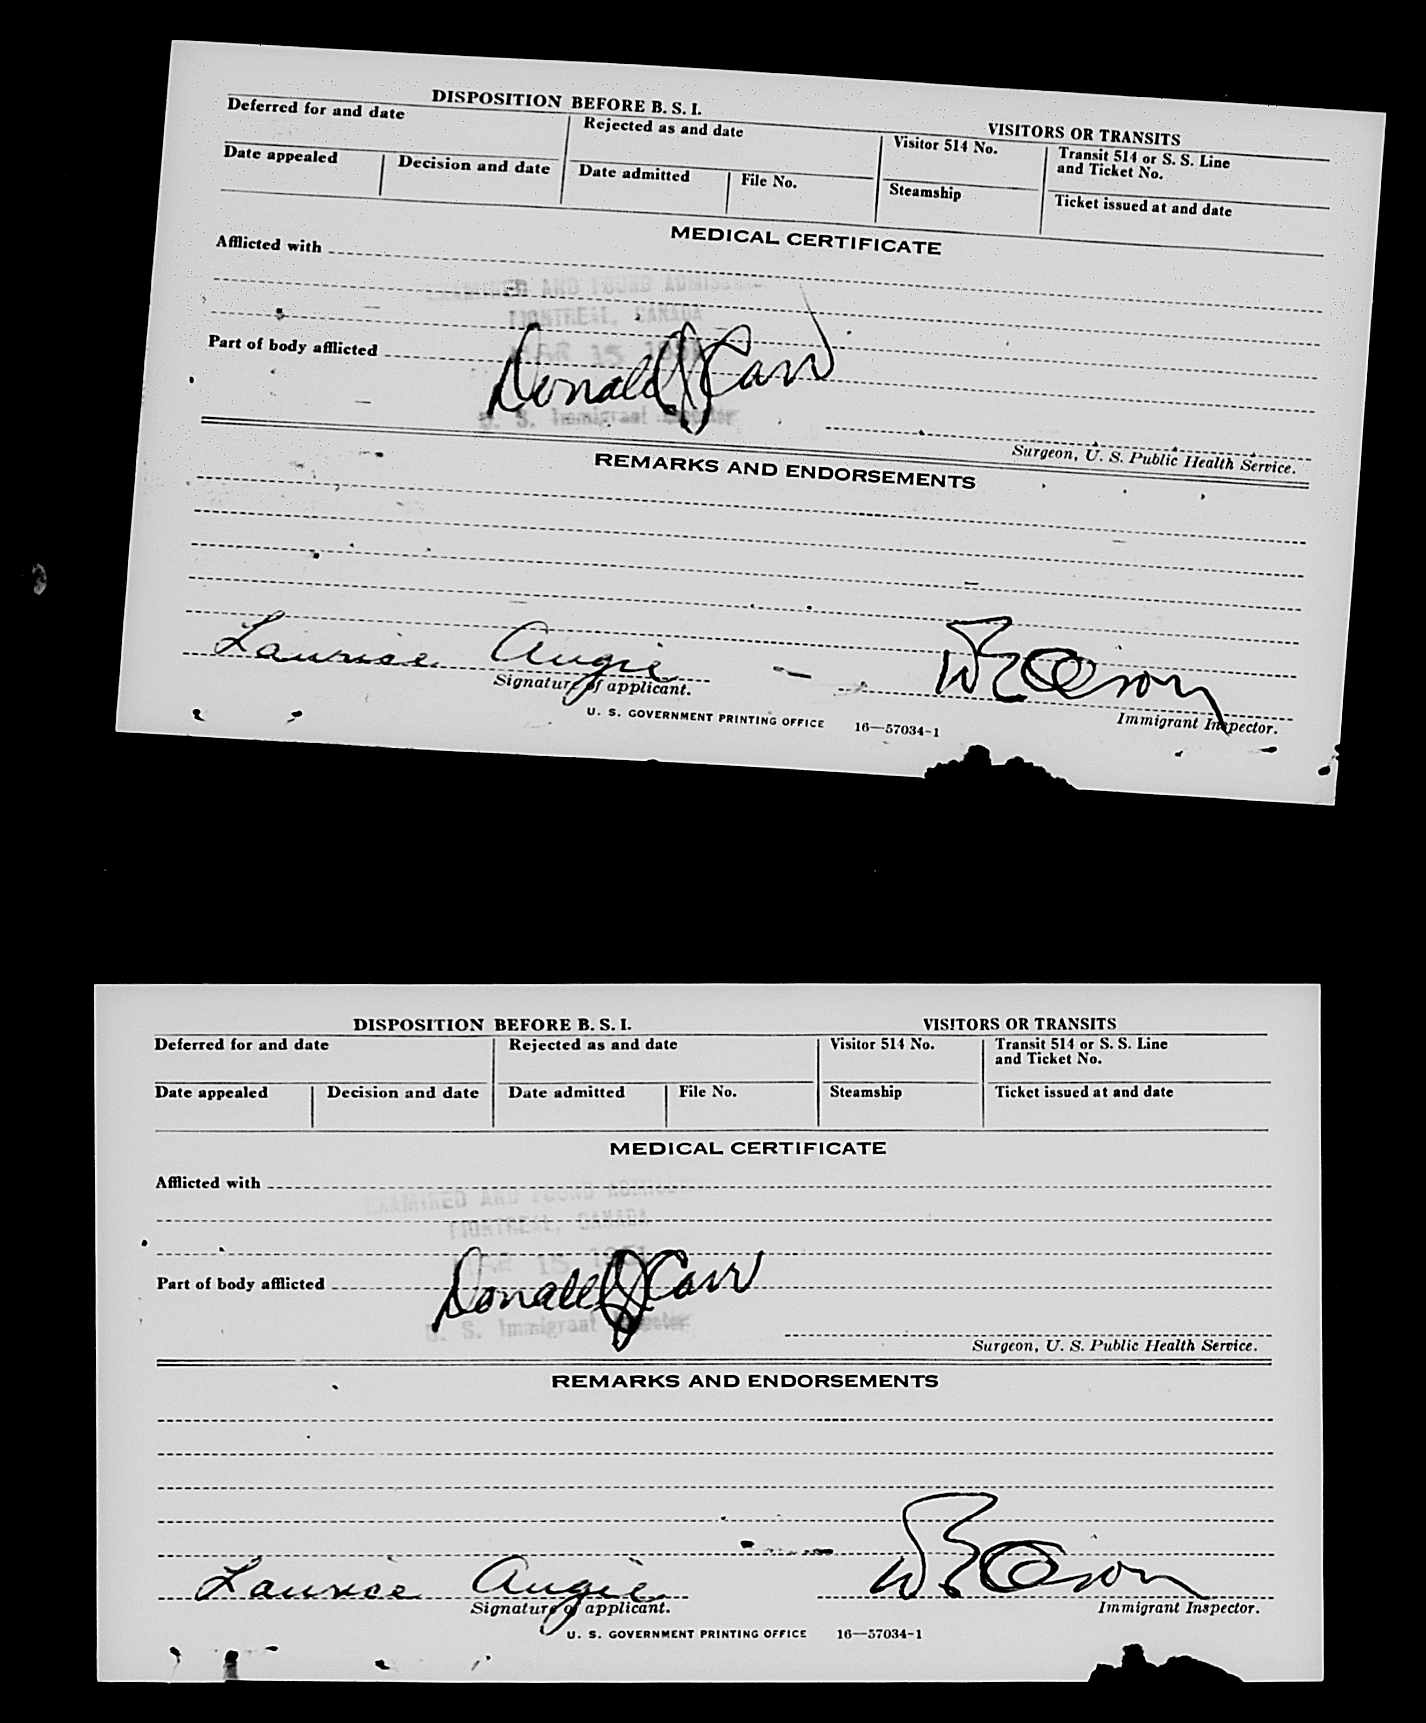 DISPOSITION BEFORE B. S. I.
VISITORS OR TRANSITS
Deferred for and date
Rejected as and date
Visitor 514 No.
Transit 514 or S. S. Line
and Ticket No.
Date appealed
Decision and date
Date admitted
File No.
Steamship
Ticket issued at and date
MEDICAL CERTIFICATE
Afflicted with
EXAMINED AND FOUND
MONTREAL, CANADA
MAR 15 1951
Part of body afflicted
Donald J Carr
U. S. Immigrant Inspector
Surgeon, U. S. Public Health Service.
REMARKS AND ENDORSEMENTS
Laurice Augie
Signature of applicant.
Immigrant Inspector.
U. S. GOVERNMENT PRINTING OFFICE 16—57034-1
DISPOSITION BEFORE B. S. I.
VISITORS OR TRANSITS
Deferred for and date
Rejected as and date
Visitor 514 No.
Transit 514 or S. S. Line
and Ticket No.
Date appealed
Decision and date
Date admitted
File No.
Steamship
Ticket issued at and date
MEDICAL CERTIFICATE
Afflicted with
EXAMINED AND FOUND
MONTREAL, CANADA
MAR 15 1951
Part of body afflicted
Donald J Carr
U. S. Immigrant Inspector
Surgeon, U. S. Public Health Service.
REMARKS AND ENDORSEMENTS
Laurice Augie
Signature of applicant.
Immigrant Inspector.
U. S. GOVERNMENT PRINTING OFFICE 16—57034-1